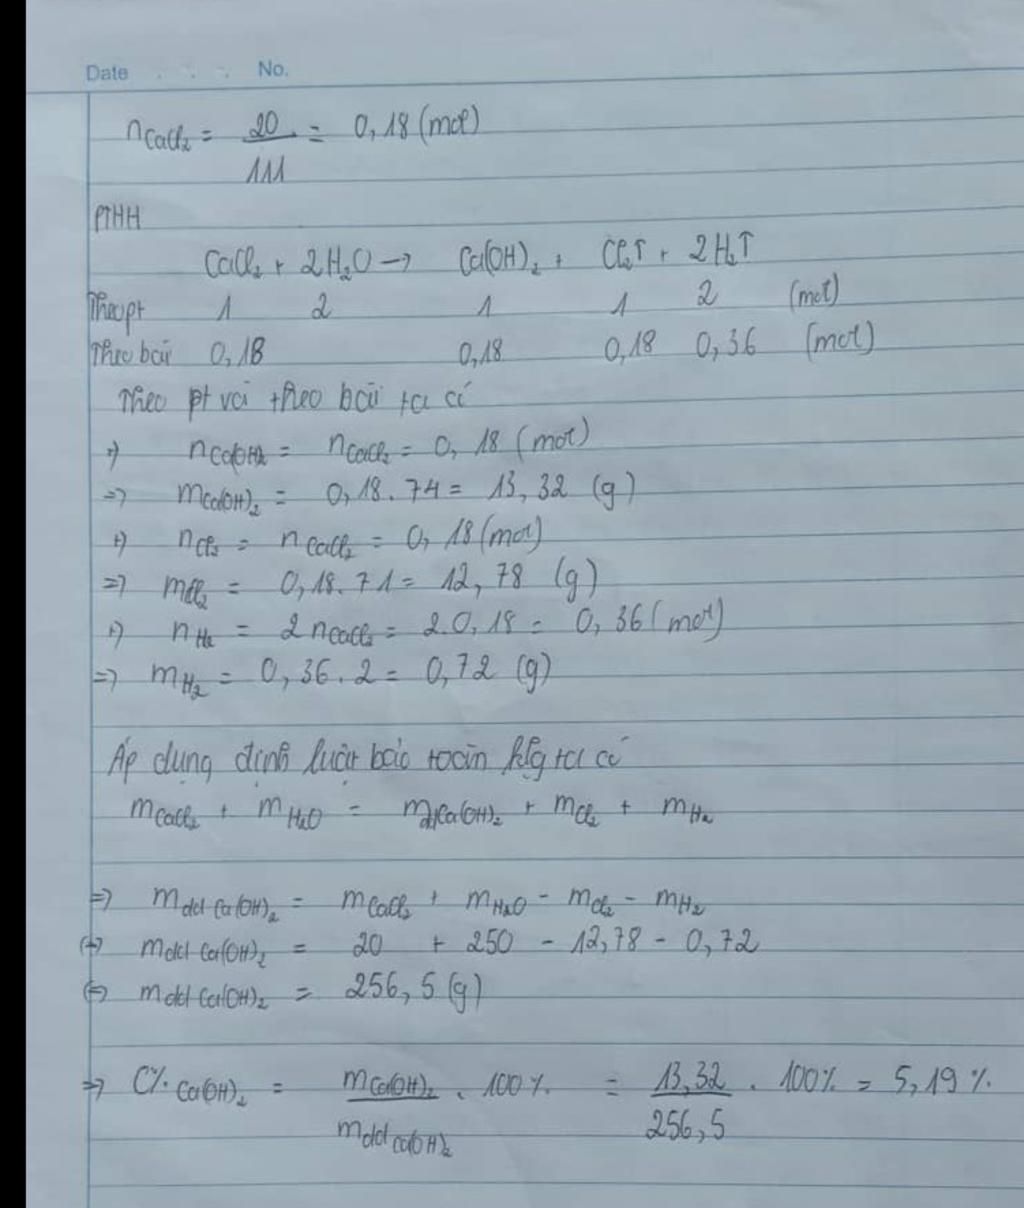 Date No.
nCaCl₂ = 20/111 = 0,18 (mol)
PTHH
CaCl₂ + 2H₂O → Ca(OH)₂ + Cl₂↑ + 2H₂↑
Theo pt 1 2 1 1 2 (mol)
Theo bài 0,18 0,18 0,18 0,36 (mol)
Theo pt và theo bài ta có
+) nCa(OH)₂ = nCaCl₂ = 0,18 (mol)
=> mCa(OH)₂ = 0,18.74 = 13,32 (g)
+) nCl₂ = nCaCl₂ = 0,18 (mol)
=> mCl₂ = 0,18.71 = 12,78 (g)
+) nH₂ = 2nCaCl₂ = 2.0,18 = 0,36 (mol)
=> mH₂ = 0,36.2 = 0,72 (g)
Áp dụng định luật bảo toàn klg ta có
mCaCl₂ + mH₂O = mddCa(OH)₂ + mCl₂ + mH₂
=> mdd Ca(OH)₂ = mCaCl₂ + mH₂O - mCl₂ - mH₂
(=) mdd Ca(OH)₂ = 20 + 250 - 12,78 - 0,72
(=) mdd Ca(OH)₂ = 256,5 (g)
=> C% Ca(OH)₂ = mCa(OH)₂/mdd Ca(OH)₂ . 100% = 13,32/256,5 . 100% = 5,19%